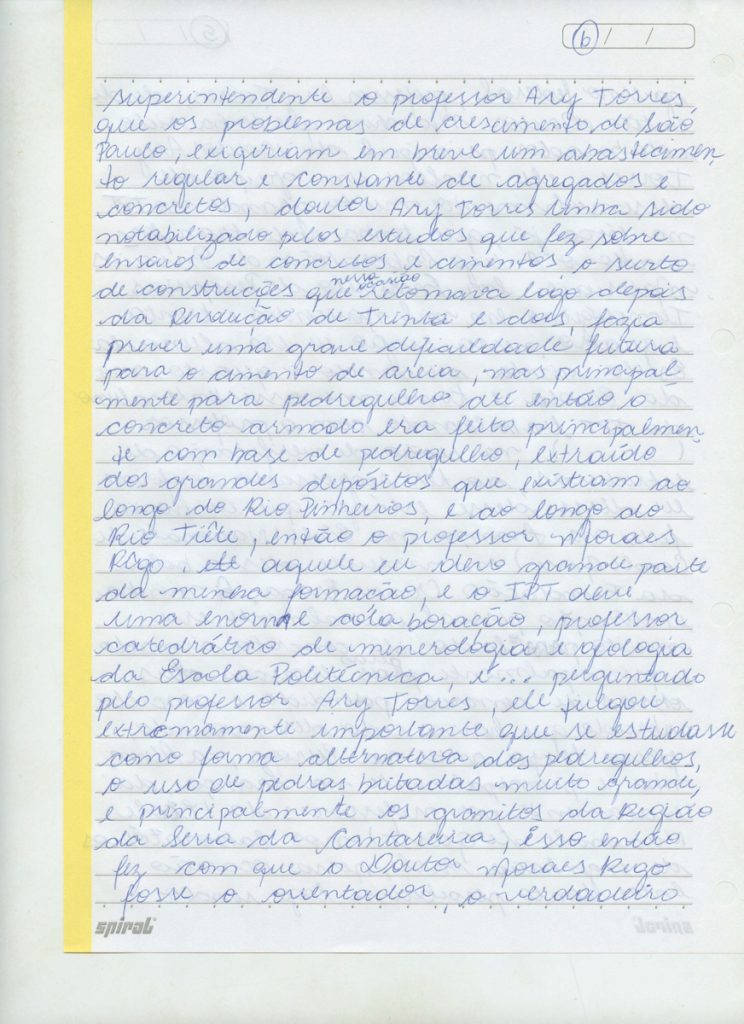 6 / /
superintendente o professor Ary Torres,
que os problemas de crescimento de São
Paulo, exigeriam em breve um abastecimen
to regular e constante de agregados e
concretos, doutor Ary Torres tinha sido
notabilizado pelos estudos que fez sobre
ensaios de concretos e cimentos, o surto
nessa ocasião
de construções que retomava logo depois
da Revolução de Trinta e dois, fazia
prever uma grave dificuldade futura
para o cimento de areia, mas principal
mente para pedregulho até então o
concreto armado era feito principalmen
te com base de pedregulho, extraído
dos grandes depósitos que existiam ao
longo do Rio Pinheiros, e ao longo do
Rio Tiête, então o professor Moraes
Rêgo, aquele eu devo grande parte
da minha formação, e o IPT deve
uma enorme colaboração, professor
catedrático de minerologia e geologia
da Escola Politécnica, e... perguntado
pelo professor Ary Torres, ele julgou
extremamente importante que se estudasse
como forma alternativa dos pedregulhos,
o uso de pedras britadas muito grande,
e principalmente os granitos da Região
da Serra da Cantareira, isso então
fez com que o Doutor Moraes Rego
fosse o orientador, o verdadeiro
spiral